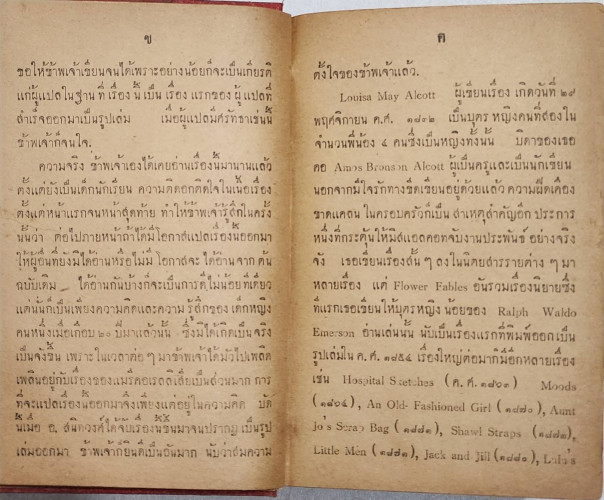 ข
ขอให้ข้าพเจ้าเขียนจนได้เพราะอย่างน้อยก็จะเป็นเกียรติ
แก่ผู้แปลในฐานที่เรื่องนี้เป็นเรื่องแรกของผู้แปลที่
สำเร็จออกมาเป็นรูปเล่ม เมื่อผู้แปลมีศรัทธาเช่นนี้
ข้าพเจ้าก็จนใจ.
ความจริง ข้าพเจ้าเองได้เคยอ่านเรื่องนี้มานานแล้ว
ตั้งแต่ยังเป็นเด็กนักเรียน ความติดอกติดใจในเนื้อเรื่อง
ตั้งแต่หน้าแรกจนหน้าสุดท้าย ทำให้ข้าพเจ้ารู้สึกในครั้ง
นั้นว่า ต่อไปภายหน้าถ้าได้มีโอกาสแปลเรื่องนี้ออกมา
ให้ผู้อื่นที่ยังมิได้อ่านหรือไม่มีโอกาสจะได้อ่านจากต้น
ฉบับเดิม ได้อ่านกันบ้างก็จะเป็นการดีไม่น้อยทีเดียว
แต่นั่นก็เป็นเพียงความคิดและความรู้สึกของเด็กหญิง
คนหนึ่งเมื่อเกือบ ๒๐ ปีมาแล้วนั้น ซึ่งมิได้เกิดเป็นจริง
เป็นจังขึ้น เพราะในเวลาต่อๆ มาข้าพเจ้าได้มัวไปเพลิด
เพลินอยู่กับเรื่องของแมรี่คอเรลลิเสียเป็นส่วนมาก การ
ที่จะแปลเรื่องนี้ออกมาจึงเพียงแต่อยู่ในความคิด บัด
นี้เมื่อ อ. สนิทวงศ์ได้จับเรื่องนี้ขึ้นมาจนปรากฏเป็นรูป
เล่มออกมา ข้าพเจ้าก็ยินดีเป็นอันมาก นับว่าสมความ
ค
ตั้งใจของข้าพเจ้าแล้ว.
Louisa May Alcott ผู้เขียนเรื่อง เกิดวันที่ ๒๙
พฤศจิกายน ค.ศ. ๑๘๓๒ เป็นบุตรหญิงคนที่สองใน
จำนวนพี่น้อง ๔ คนซึ่งเป็นหญิงทั้งนั้น บิดาของเธอ
คือ Amos Bronson Alcott ผู้เป็นครูและเป็นนักเขียน
นอกจากมีใจรักทางขีดเขียนอยู่ด้วยแล้ว ความฝืดเคือง
ขาดแคลนในครอบครัวก็เป็นสาเหตุสำคัญอีกประการ
หนึ่งที่กระตุ้นให้มิสแอลคอทจับงานประพันธ์อย่างจริง
จัง เธอเขียนเรื่องสั้นๆ ลงในนิตยสารรายต่างๆ มา
หลายเรื่อง แต่ Flower Fables อันรวมเรื่องนิยายซึ่ง
ที่แรกเธอเขียนให้บุตรหญิงน้อยของ Ralph Waldo
Emerson อ่านเล่นนั้น นับเป็นเรื่องแรกที่พิมพ์ออกเป็น
รูปเล่มใน ค.ศ. ๑๘๕๔ เรื่องใหญ่ต่อมาก็มีอีกหลายเรื่อง
เช่น Hospital Sketches (ค.ศ. ๑๘๖๓) Moods
(๑๘๖๔), An Old-Fashioned Girl (๑๘๗๐), Aunt
Jo's Scrap Bag (๑๘๗๑), Shawl Straps (๑๘๗๒),
Little Men (๑๘๗๑), Jack and Jill (๑๘๘๐), Lulu's